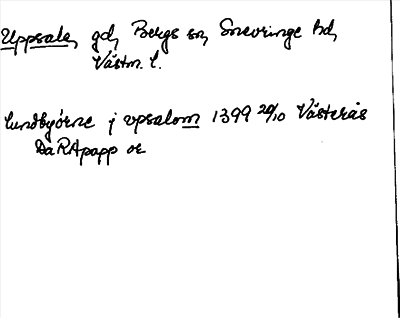 Uppsala, gd, Bergs sn, Snevringe hd,
Västm. l.
lundbyórne j vpsalom 1399 20/10 Västerås
Da RApapp or